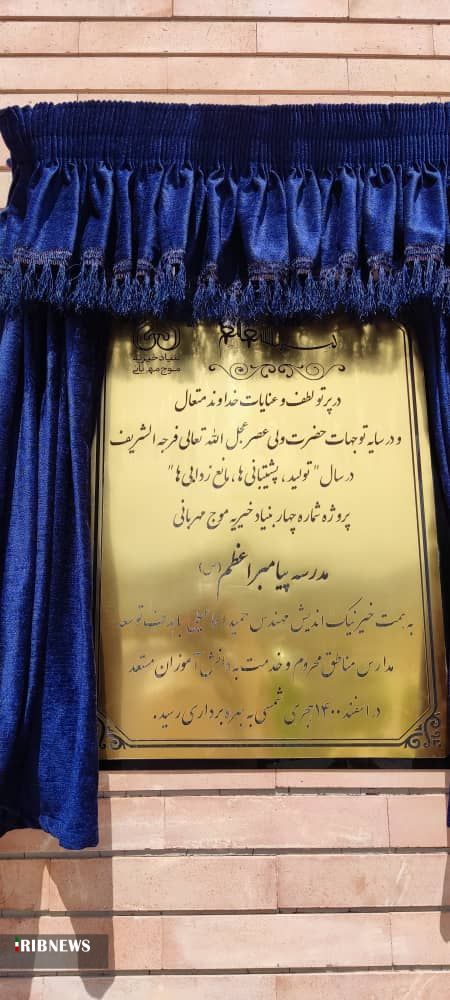 بنیاد خیریه
موج مهربانی
در پرتو لطف و عنایات خداوند متعال
و در سایه توجهات حضرت ولی عصر عجل الله تعالی فرجه الشریف
در سال "تولید، پشتیبانی ها، مانع زدایی ها"
پروژه شماره چهار بنیاد خیریه موج مهربانی
مدرسه پیامبر اعظم (ص)
به همت خیر نیک اندیش مهندس حمید با هدف توسعه
مدارس مناطق محروم و خدمت به دانش آموزان مستعد
در اسفند ۱۴۰۰ هجری شمسی به بهره برداری رسید.
RIBNEWS